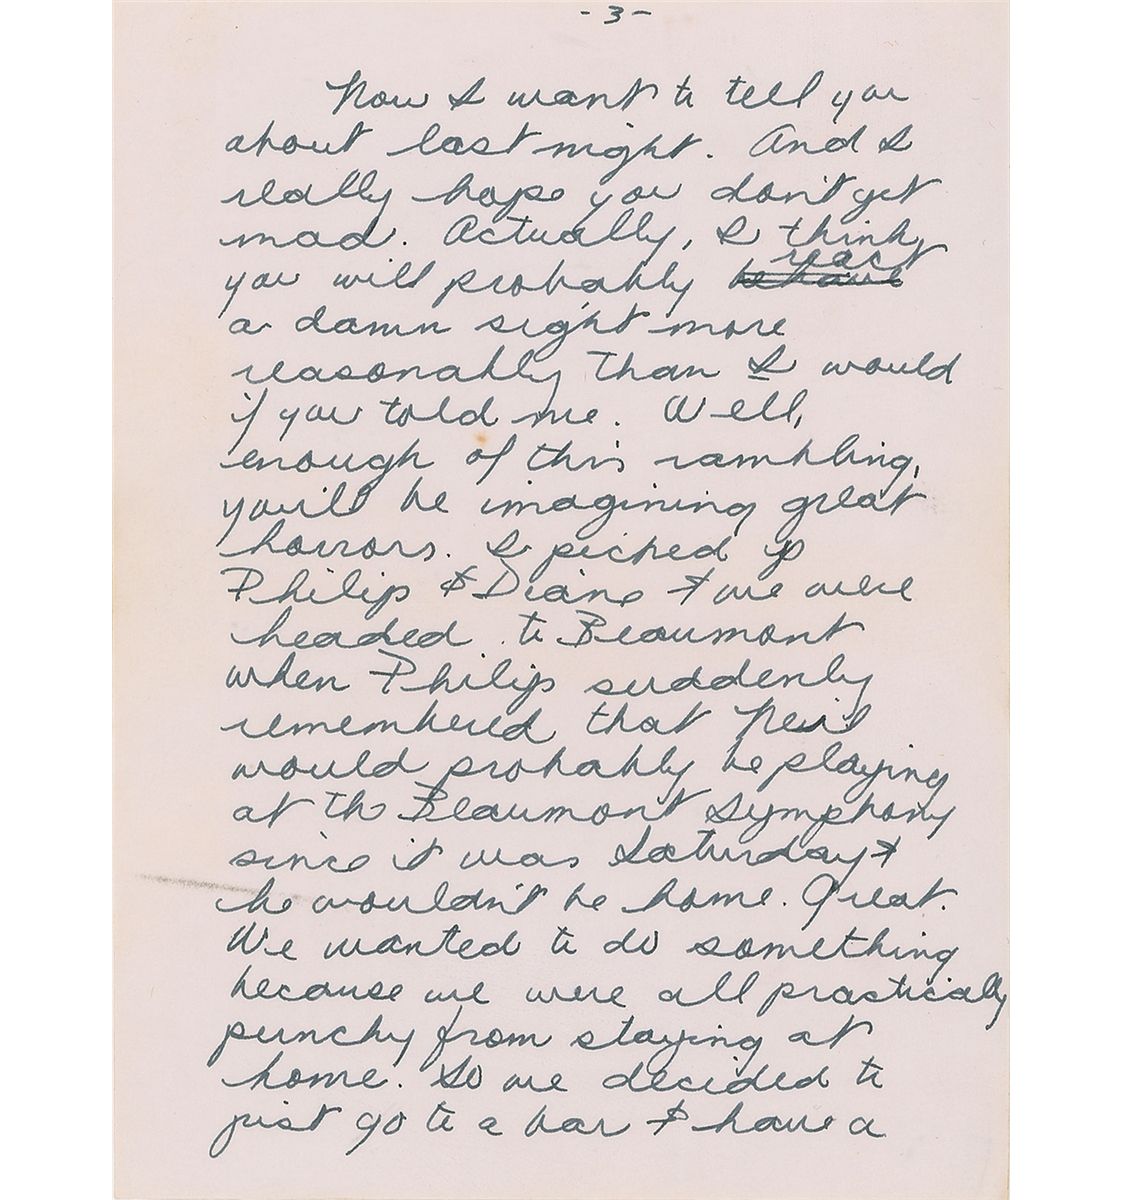 -3-
Now I want to tell you
about last night. And I
really hope you don't get
mad. Actually, I think
react
you will probably behave
a damn sight more
reasonably than I would
if you told me. Well,
enough of this rambling,
you'll be imagining great
horrors. I picked up
Philip & Diane & we were
headed to Beaumont
when Philip suddenly
remembered that Neil
would probably be playing
at the Beaumont Symphony
since it was Saturday &
he wouldn't be home. Great.
We wanted to do something
because we were all practically
punchy from staying at
home. So we decided to
just go to a bar & have a